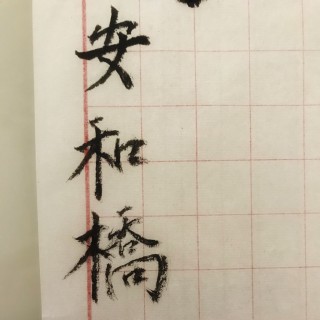 安和橋